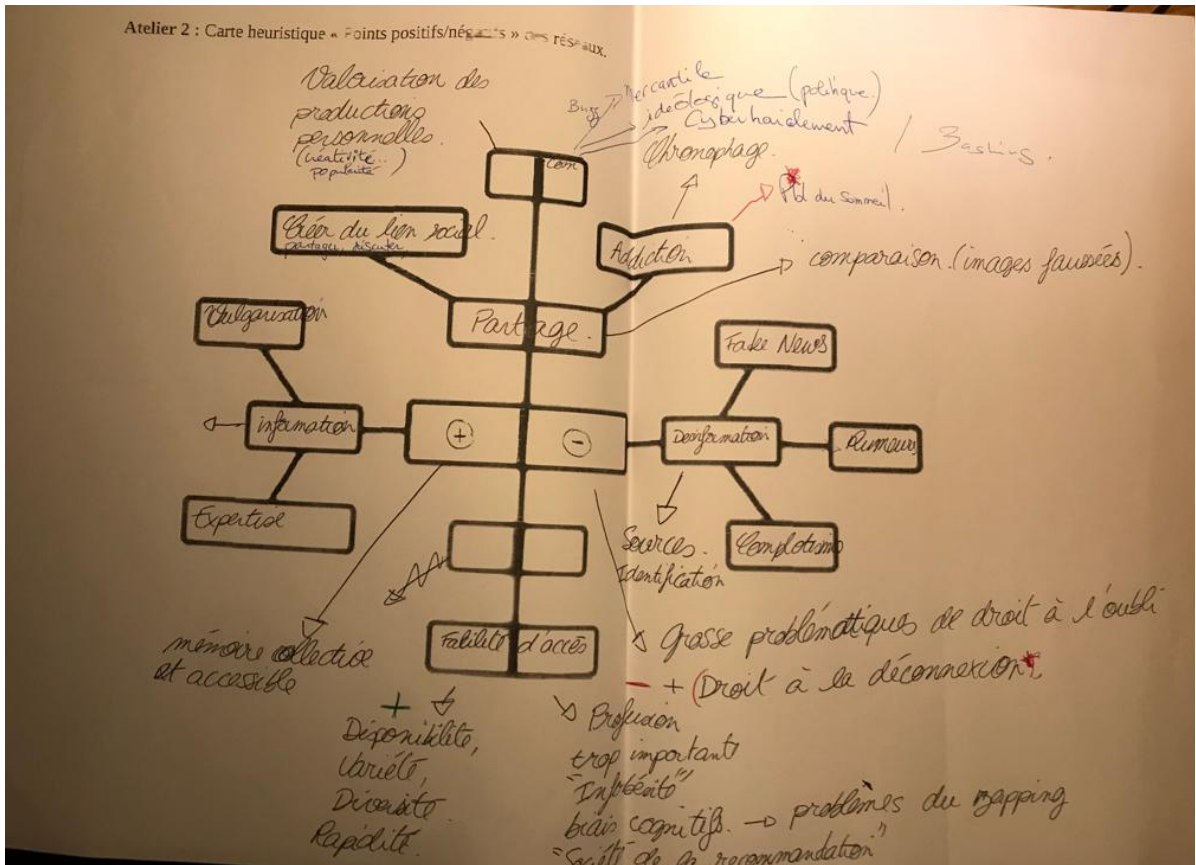 Atelier 2 : Carte heuristique « Points positifs/négatifs » des réseaux.
Valorisation des
productions
personnelles.
(créativité...
popularité)
Com
Buzz
Mercantile
idéologique (politique)
Cyberharcèlement
/ Bashing.
Chronophage.
Pb du Sommeil.
Créer du lien social.
partager, discuter,
Addiction
comparaison. (images faussées).
Vulgarisation
Partage.
Fake News
information
+
-
Desinformation
Rumeurs
Expertise
Sources.
Identification
Complotisme
mémoire collective
et accessible
Facilité d'accès
Grosse problématiques de droit à l'oubli
- + (Droit à la déconnexion)
+
Disponibilité,
Variété,
Diversité
Rapidité.
Profusion
trop important
"Infobésité"
biais cognitifs. → problèmes du mapping
"Société de la recommandation"